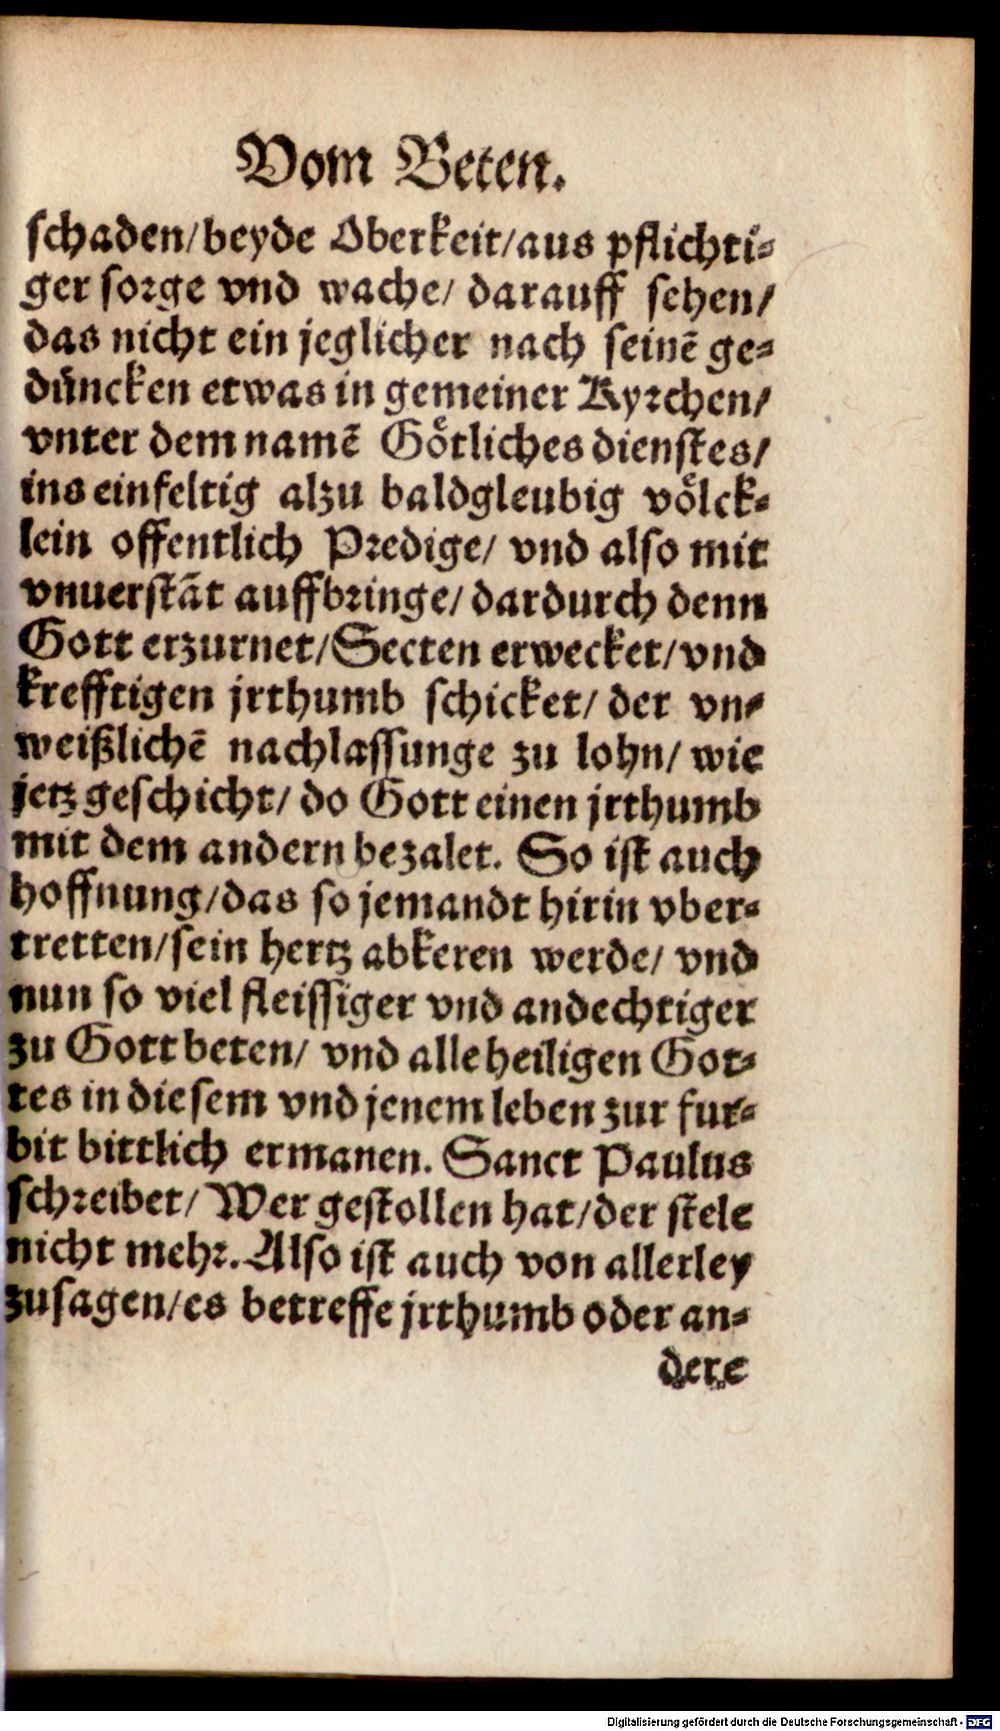 Vom Beten.
schaden/beyde Oberkeit/aus pflichti-
ger sorge vnd wache/ darauff sehen/
das nicht ein jeglicher nach seinē ge-
düncken etwas in gemeiner Kyrchen/
vnter dem namē Götliches dienstes/
ins einfeltig alzu baldgleubig völck-
lein offentlich Predige/ vnd also mit
vnuerstāt auffbringe/ dardurch denn
Gott erzurnet/Secten erwecket/vnd
krefftigen jrthumb schicket/ der vn-
weißlichē nachlassunge zu lohn/ wie
jetz geschicht/ do Gott einen jrthumb
mit dem andern bezalet. So ist auch
hoffnung/das so jemandt hirin vber-
tretten/sein hertz abkeren werde/ vnd
nun so viel fleissiger vnd andechtiger
zu Gott beten/ vnd alle heiligen Got-
tes in diesem vnd jenem leben zur fur-
bit bittlich ermanen. Sanct Paulus
schreibet/ Wer gestollen hat/der stele
nicht mehr. Also ist auch von allerley
zusagen/es betreffe jrthumb oder an-
dere
Digitalisierung gefördert durch die Deutsche Forschungsgemeinschaft - DFG